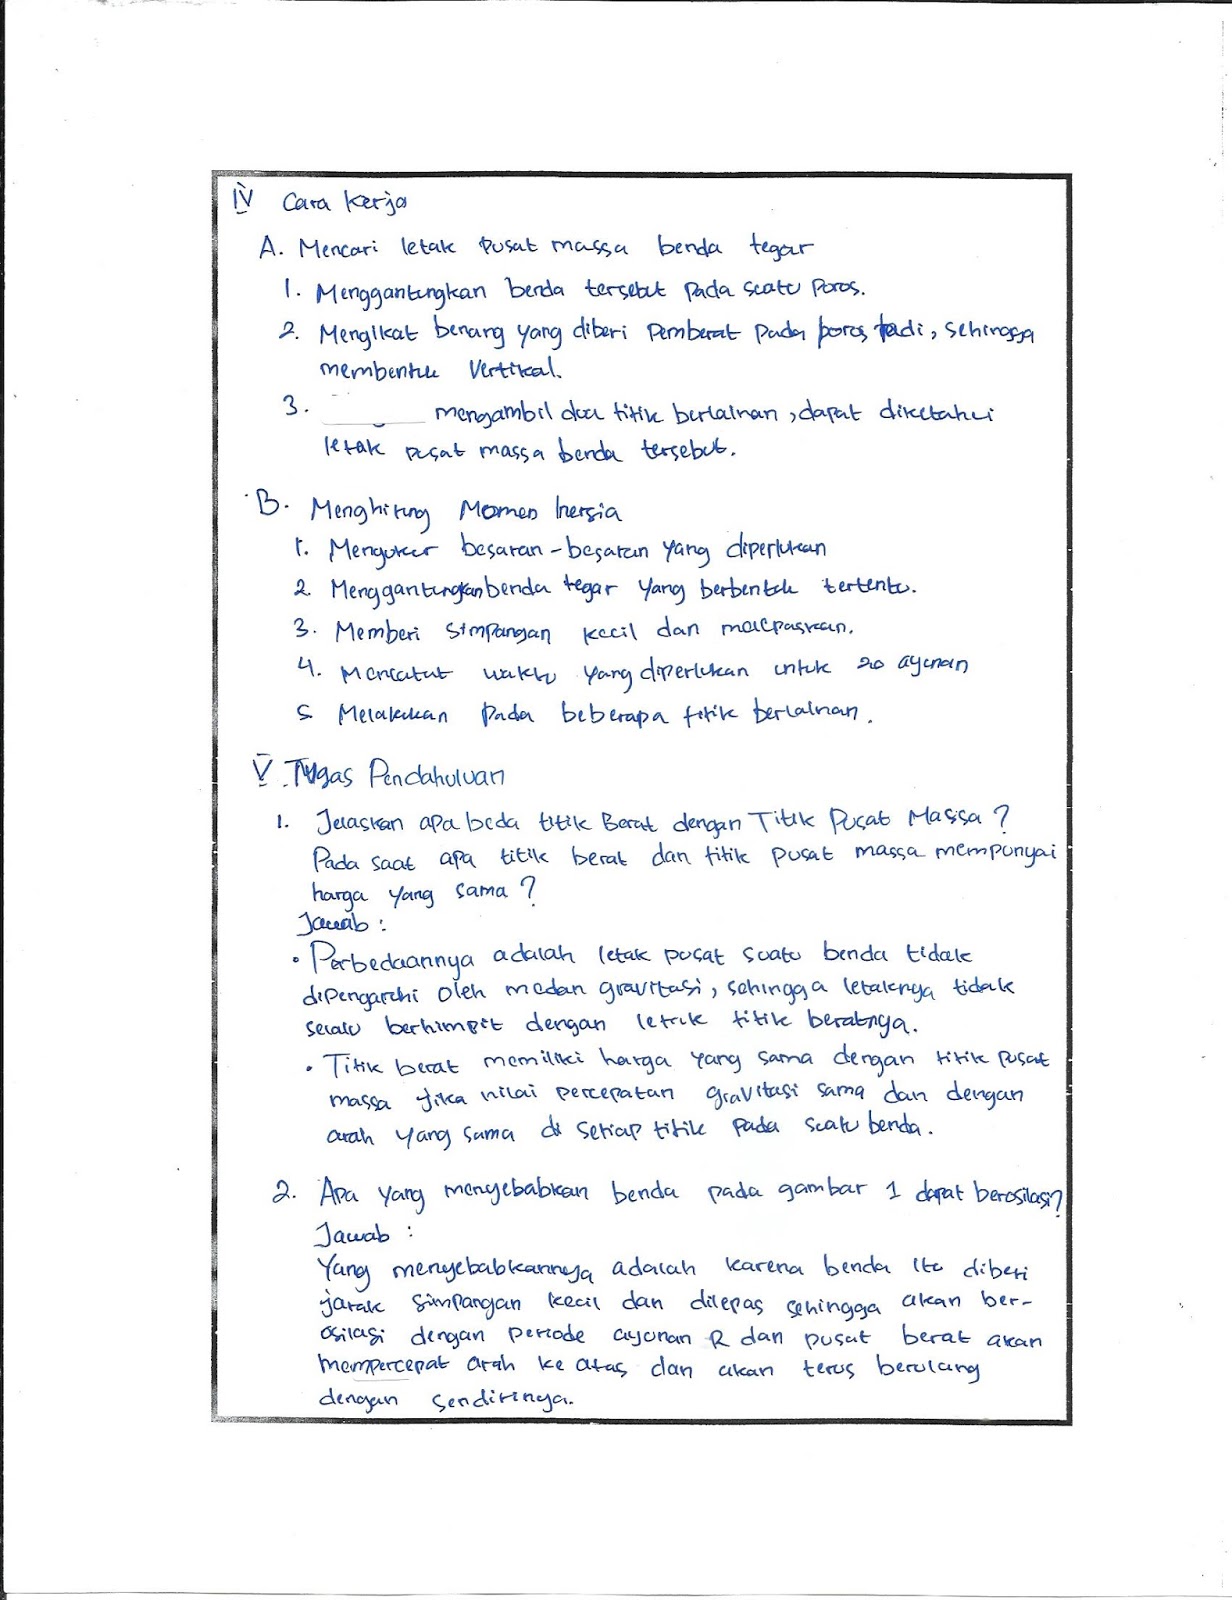 IV Cara Kerja
A. Mencari letak pusat massa benda tegar
1. Menggantungkan benda tersebut pada suatu poros.
2. Mengikat benang yang diberi pemberat pada poros tadi, sehingga
membentuk vertikal.
3. mengambil dua titik berlainan, dapat diketahui
letak pusat massa benda tersebut.
B. Menghitung Momen Inersia
1. Mengukur besaran-besaran yang diperlukan
2. Menggantungkan benda tegar yang berbentuk tertentu.
3. Memberi simpangan kecil dan melepaskan.
4. Mencatat waktu yang diperlukan untuk 20 ayunan
5 Melakukan pada beberapa titik berlainan.
V Tugas Pendahuluan
1. Jelaskan apa beda titik Berat dengan Titik Pusat Massa?
Pada saat apa titik berat dan titik pusat massa mempunyai
harga yang sama?
Jawab:
• Perbedaannya adalah letak pusat suatu benda tidak
dipengaruhi oleh medan gravitasi, sehingga letaknya tidak
selalu berhimpit dengan letak titik beratnya.
• Titik berat memiliki harga yang sama dengan titik pusat
massa jika nilai percepatan gravitasi sama dan dengan
arah yang sama di setiap titik pada suatu benda.
2. Apa yang menyebabkan benda pada gambar 1 dapat berosilasi?
Jawab:
Yang menyebabkannya adalah karena benda itu diberi
jarak simpangan kecil dan dilepas sehingga akan ber-
osilasi dengan periode ayunan R dan pusat berat akan
mempercepat arah ke atas dan akan terus berulang
dengan sendirinya.